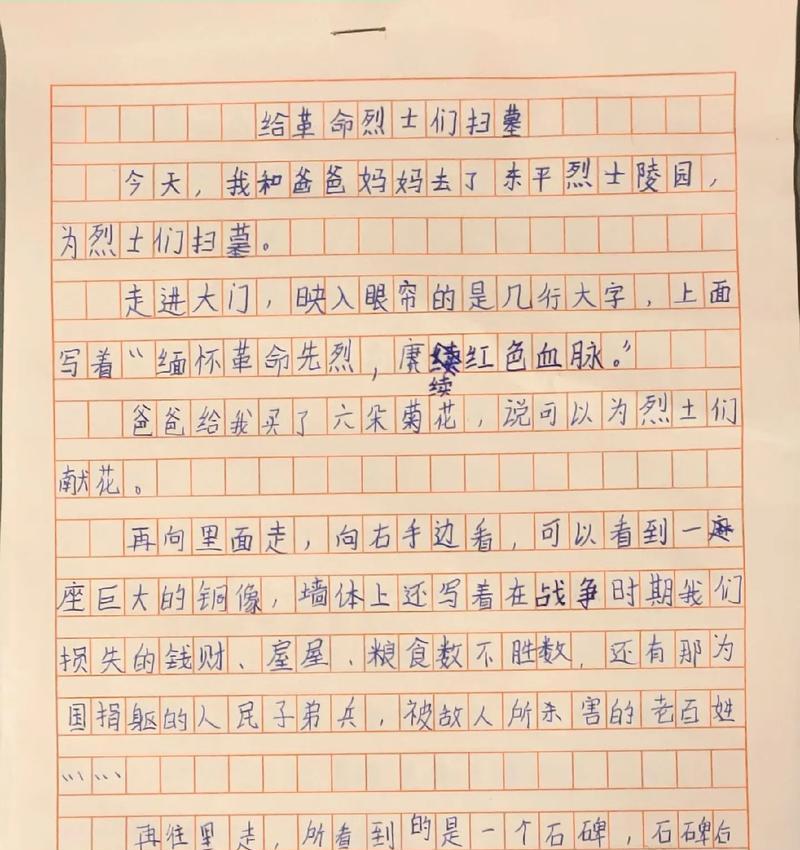 给革命烈士们扫墓
今天，我和爸爸妈妈去了东平烈士陵园，
为烈士们扫墓。
走进大门，映入眼帘的是几行大字，上面
写着“缅怀革命先烈，赓续红色血脉。”
爸爸给我买了六朵菊花，说可以为烈士们
献花。
再向里面走，向右手边看，可以看到一
座巨大的铜像，墙体上还写着在战争时期我们
损失的钱财、屋、粮食数不胜数，还有那为
国捐躯的人民子弟兵，被敌人所杀害的老百姓
……
再往里走，所看到的是一个石碑，石碑右